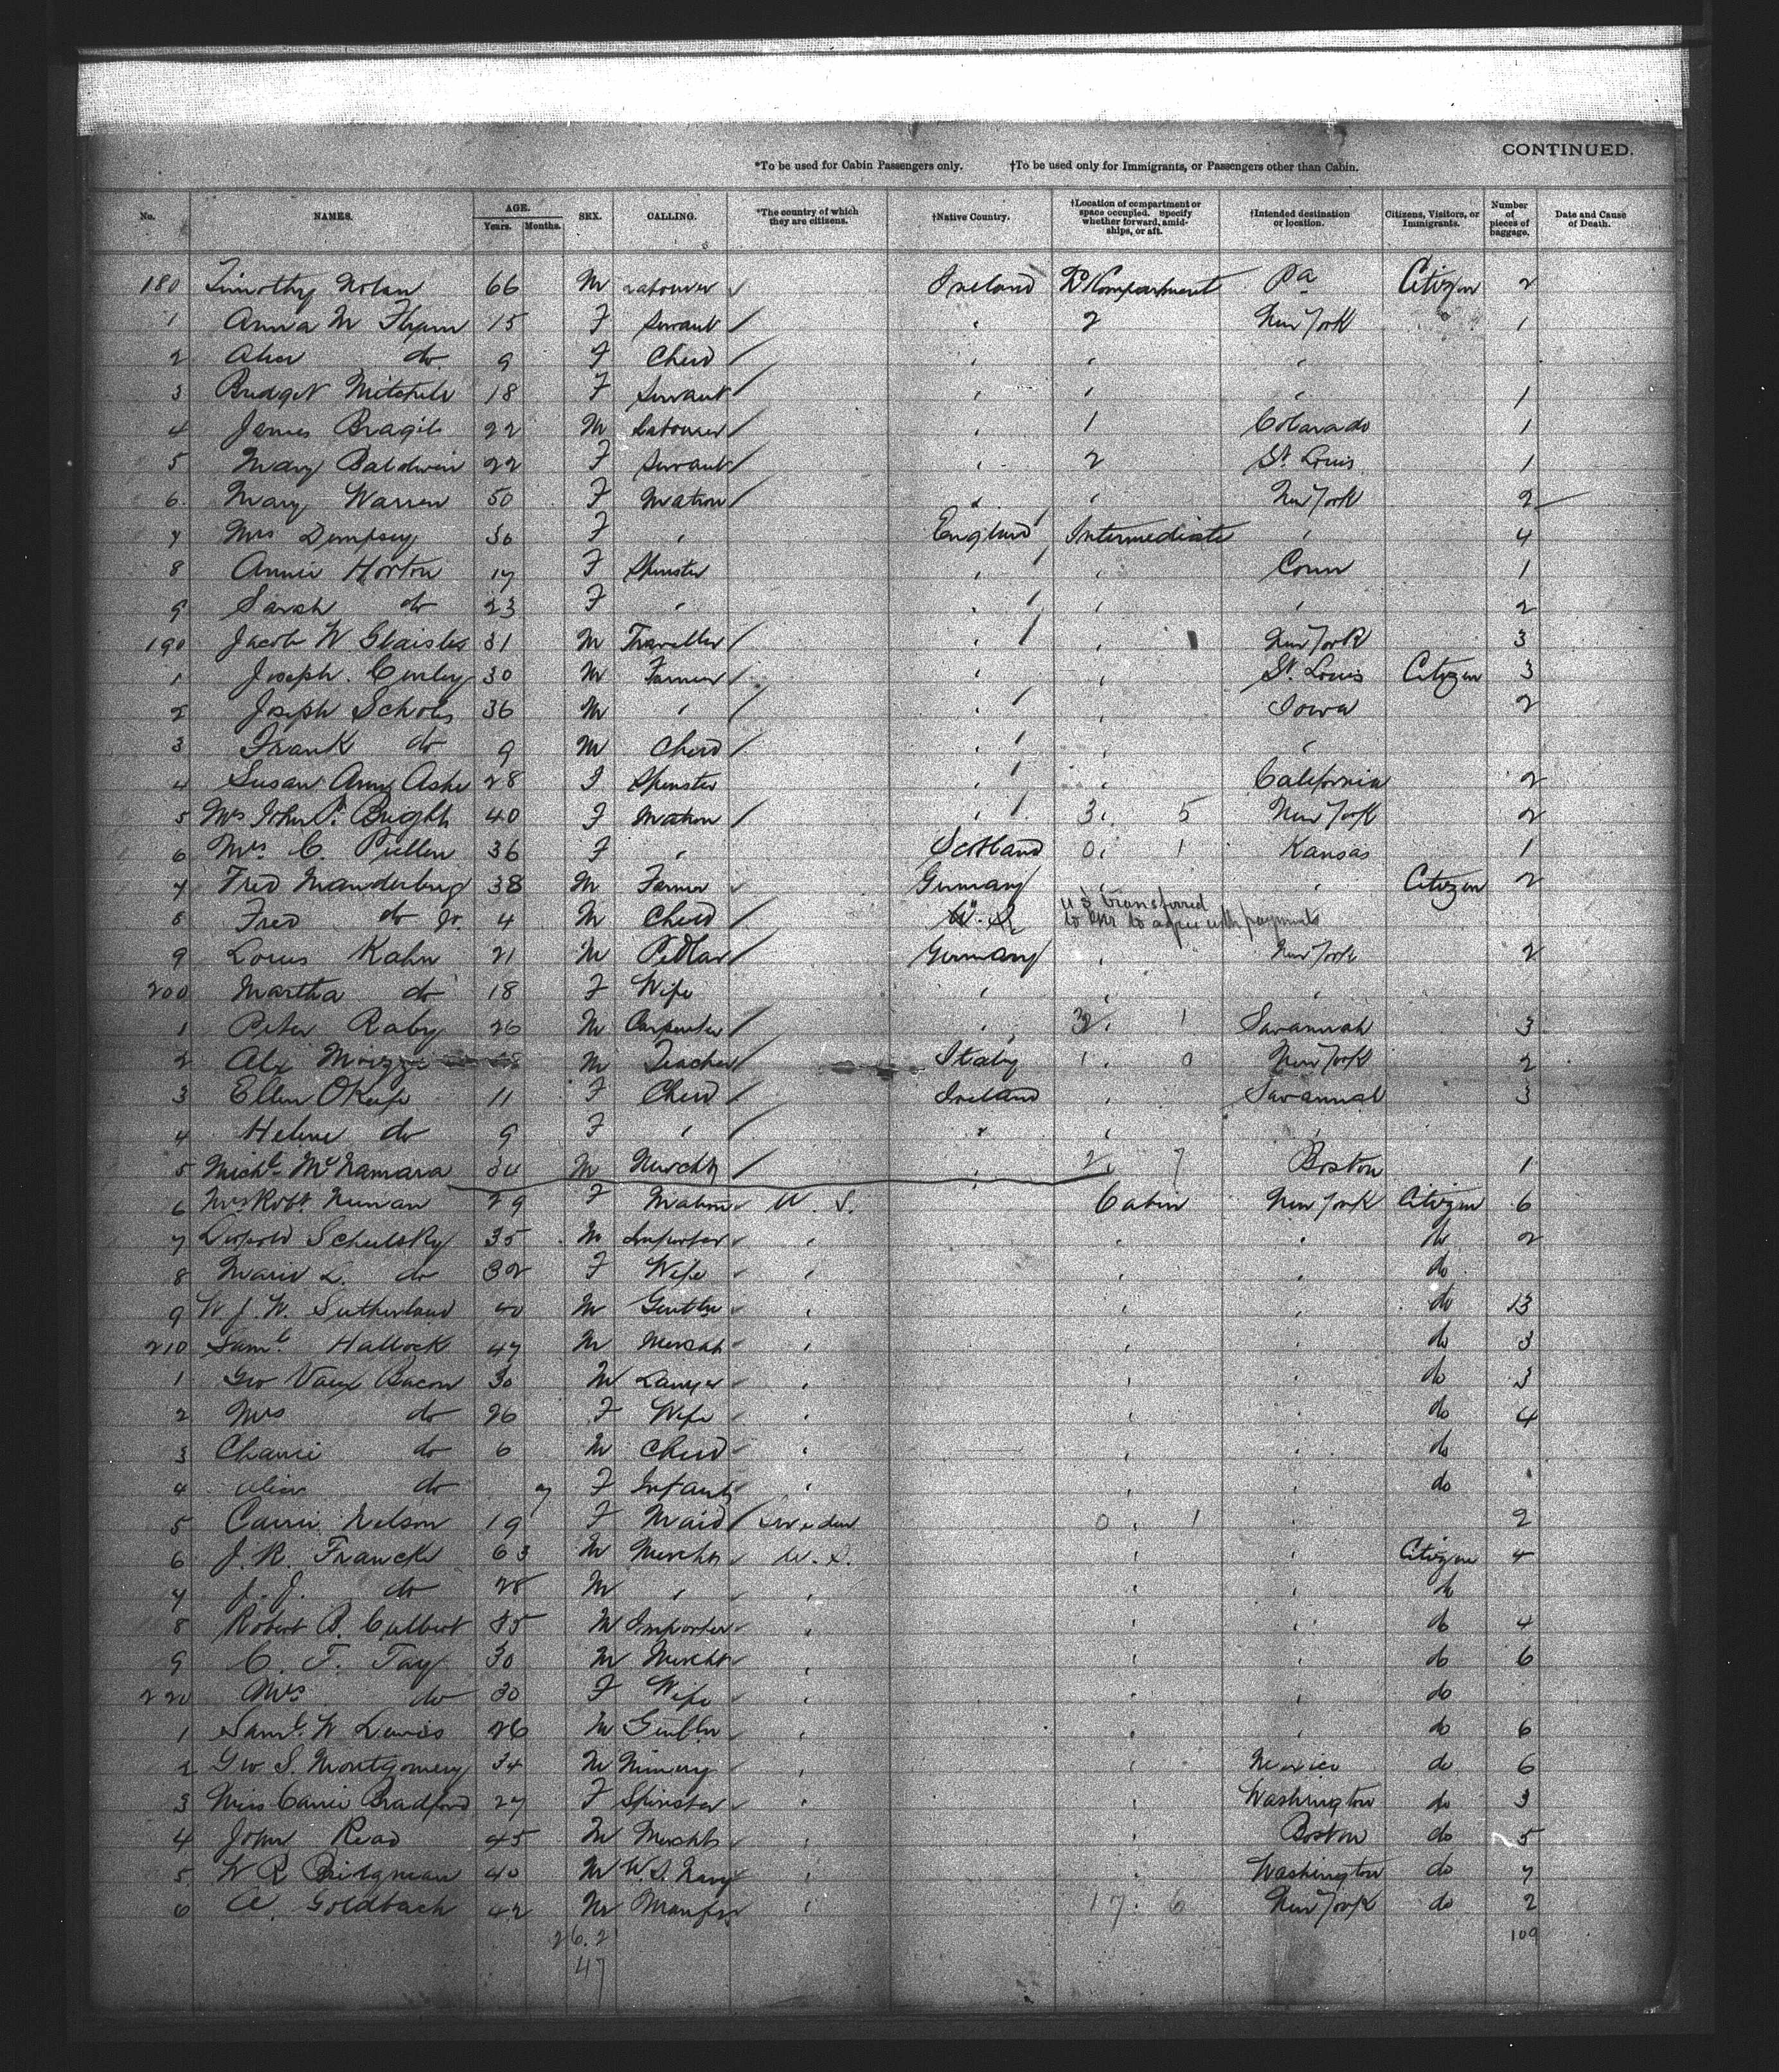 CONTINUED.
*To be used for Cabin Passengers only. †To be used only for Immigrants, or Passengers other than Cabin.
No. NAMES. AGE. Years. Months. SEX. CALLING. *The country of which they are citizens. †Native Country. †Location of compartment or space occupied. Specify whether forward, amidships, or aft. †Intended destination or location. Citizens, Visitors, or Immigrants. Number of pieces of baggage. Date and Cause of Death.
180 Timothy Nolan 66 M Labourer Ireland Compartment Pa Citizen 2
1 Anna M 15 F Servant " 2 New York 1
2 do 9 F Child " " "
3 Bridget Mitchell 18 F Servant " " " 1
4 James 22 M Labourer " 1 Colorado 1
5 Mary Baldwin 22 F Servant " 2 St. Louis 1
6 Mary Warren 50 F Matron " " New York 2
7 Mrs Dempsey 30 F " England Intermediate " 4
8 Annie Horton 17 F Spinster " " Conn 1
9 Sarah do 23 F " " " " 2
190 Jacob W Glaister 31 M Traveller " " New York 3
1 Joseph Curley 30 M Farmer " " St. Louis Citizen 3
2 Joseph Scholes 36 M " " " Iowa 2
3 Frank do 9 M Child " " "
4 Susan Ann Ashe 28 F Spinster " " California 2
5 Mrs John P. Bright 40 F Matron " 3 " 5 New York 2
6 Mrs C. Pullen 36 F " Scotland 0 " 1 Kansas 1
7 Fred Manderburg 38 M Farmer Germany " " Citizen 2
8 Fred do Jr. 4 M Child U.S. U S transferred to to agree with payments
9 Louis Kahn 21 M Pedlar Germany " New York 2
200 Martha do 18 F Wife " " "
1 Peter Raby 26 M Carpenter " " 1 Savannah 3
2 Alex M Teacher Italy 1 " 0 New York 2
3 Ellen OKeefe 11 F Child Ireland " Savannah 3
4 Helene do 9 F " " " "
5 Michl. McNamara 34 M Mercht " 2 " 7 Boston 1
6 Mrs Robt. Nunan 29 F Matron U. S. Cabin New York Citizen 6
7 Leopold Schulsky 35 M Importer " " " do 2
8 Marie L. do 32 F Wife " " " do
9 W. J. W. Sutherland 40 M Gentln " " " do 13
210 Saml. Hallock 47 M Mercht " " " do 3
1 Geo Vaux Bacon 30 M Lawyer " " " do 3
2 Mrs do 26 F Wife " " " do 4
3 do 6 M Child " " " do
4 Alice do F Infant " " " do
5 Carrie Nelson 19 F Maid Sweden 0 " 1 " 2
6 J. R. Francke 63 M Mercht U. S. " " Citizen 4
7 J. J. do 28 M " " " " do
8 Robert B. Culbert 35 M Importer " " " do 4
9 C. F. Tay 30 M Mercht " " " do 6
220 Mrs do 30 F Wife " " " do
1 Saml. W Lewis 26 M Gentln " " " do 6
2 Geo S. Montgomery 34 M " " Mexico do 6
3 Miss Carrie Bradford 27 F Spinster " " Washington do 3
4 John Read 45 M Mercht " " Boston do 5
5 W R Bridgman 40 M U.S. Navy " " Washington do 7
6 A. Goldbach 42 M Manfr " 17 " 6 New York do 2
26.2 109
47